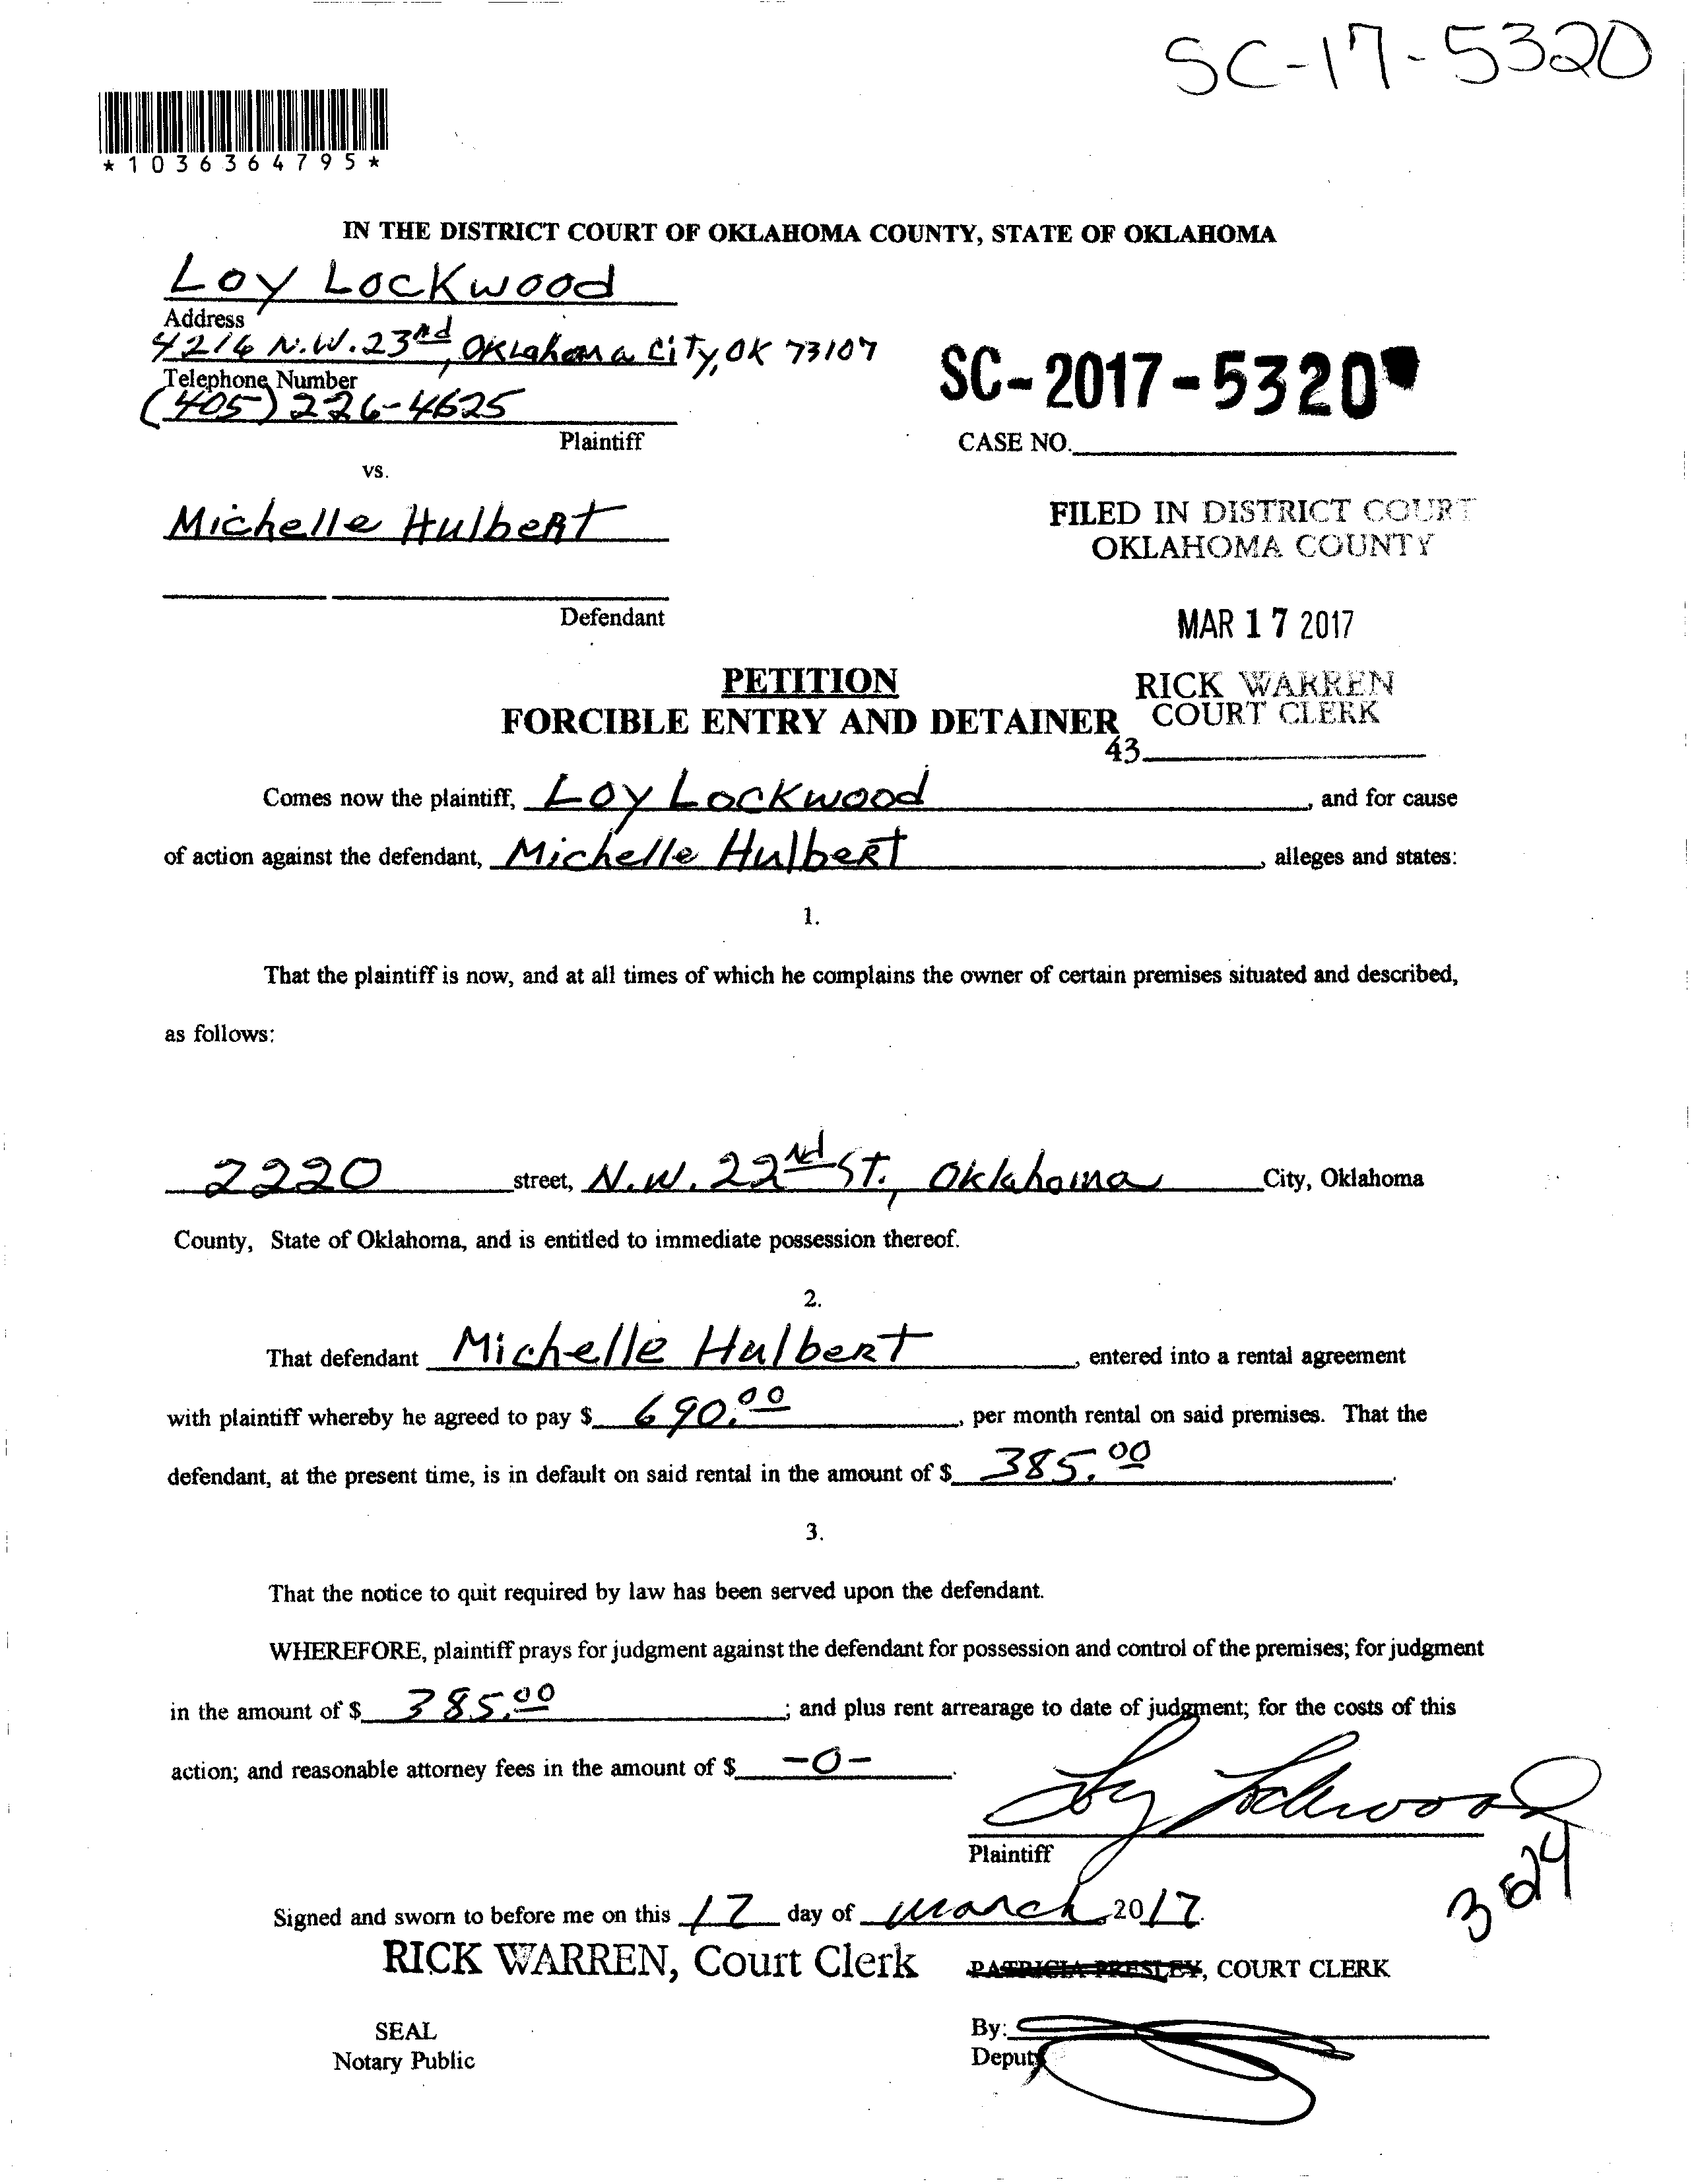 SC-17-5320
*1036364795*
IN THE DISTRICT COURT OF OKLAHOMA COUNTY, STATE OF OKLAHOMA
Loy Lockwood
Address
4216 N.W. 23rd, Oklahoma City, OK 73107
Telephone Number
(405) 226-4625
Plaintiff
SC-2017-5320
CASE NO.
vs.
Michelle Hulbert
Defendant
FILED IN DISTRICT COURT
OKLAHOMA COUNTY
MAR 17 2017
RICK WARREN
COURT CLERK
43
PETITION
FORCIBLE ENTRY AND DETAINER
Comes now the plaintiff, Loy Lockwood, and for cause
of action against the defendant, Michelle Hulbert, alleges and states:
1.
That the plaintiff is now, and at all times of which he complains the owner of certain premises situated and described,
as follows:
2220 street, N.W. 22nd St., Oklahoma City, Oklahoma
County, State of Oklahoma, and is entitled to immediate possession thereof.
2.
That defendant Michelle Hulbert, entered into a rental agreement
with plaintiff whereby he agreed to pay $ 690.00, per month rental on said premises. That the
defendant, at the present time, is in default on said rental in the amount of $ 385.00.
3.
That the notice to quit required by law has been served upon the defendant.
WHEREFORE, plaintiff prays for judgment against the defendant for possession and control of the premises; for judgment
in the amount of $ 385.00; and plus rent arrearage to date of judgment; for the costs of this
action; and reasonable attorney fees in the amount of $ -0-.
Loy Lockwood
Plaintiff
Signed and sworn to before me on this 17 day of March, 2017.
RICK WARREN, Court Clerk
PATRICIA PRESLEY, COURT CLERK
SEAL
Notary Public
By:
Deputy